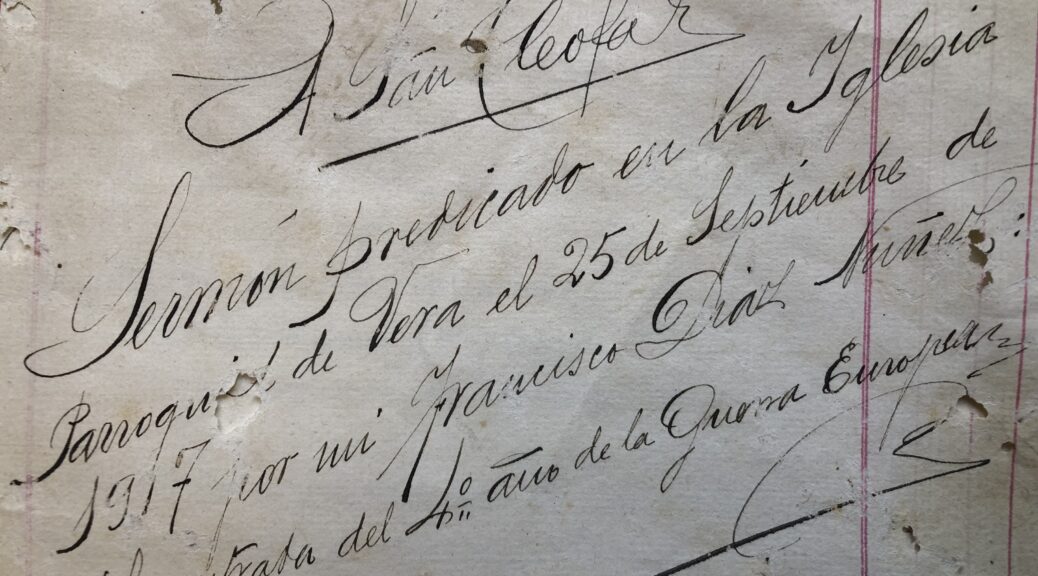 A San Cleofás
Sermón predicado en la Iglesia
Parroquial de Vera el 25 de Septiembre de
1917 por mi Francisco Diaz Nuñez:
trata del 4º año de la Guerra Europea